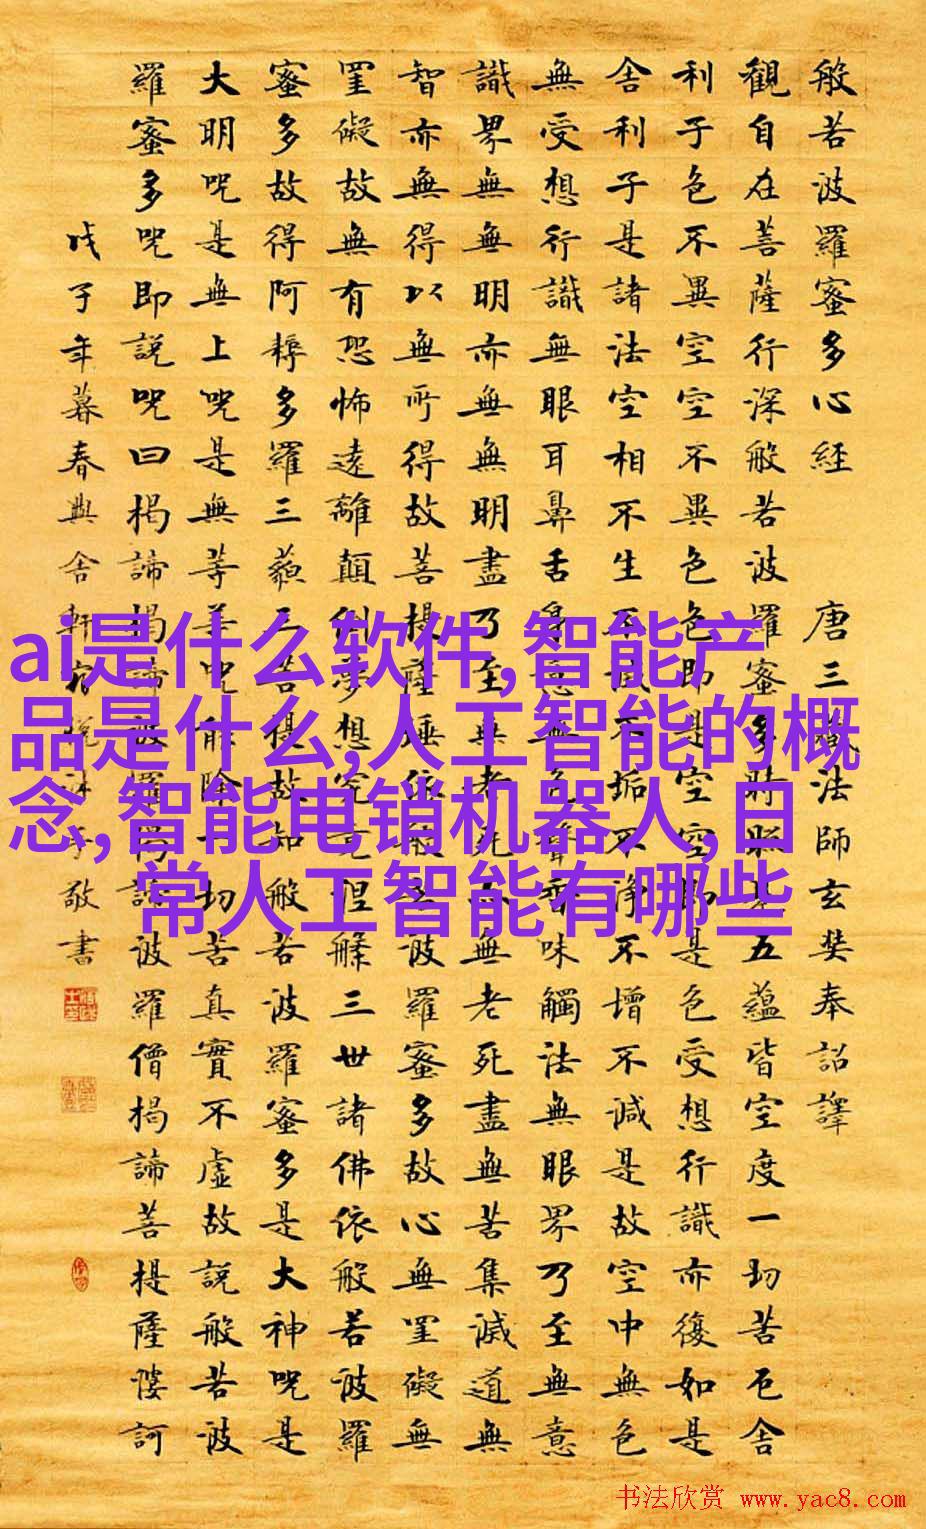 般若波羅蜜多心經 唐三藏法師玄奘奉詔譯
觀自在菩薩行深般若波羅蜜多時照見五蘊皆空度一切苦厄舍
利子色不異空空不異色色即是空空即是色受想行識亦復如是
舍利子是諸法空相不生不滅不垢不淨不增不減是故空中無色
無受想行識無眼耳鼻舌身意無色聲香味觸法無眼界乃至無意
識界無無明亦無無明盡乃至無老死亦無老死盡無苦集滅道無
智亦無得以無所得故菩提薩埵依般若波羅蜜多故心無罣礙無
罣礙故無有恐怖遠離顛倒夢想究竟涅槃三世諸佛依般若波羅
蜜多故得阿耨多羅三藐三菩提故知般若波羅蜜多是大神咒是
大明咒是無上咒是無等等咒能除一切苦真實不虛故說般若波
羅蜜多咒即說咒曰揭諦揭諦波羅揭諦波羅僧揭諦菩提薩婆訶
戊子年暮春興舍軒 敬書
ai是什么软件,智能产
品是什么,人工智能的概
念,智能电销机器人,日
常人工智能有哪些
书法欣赏 www.yac8.com